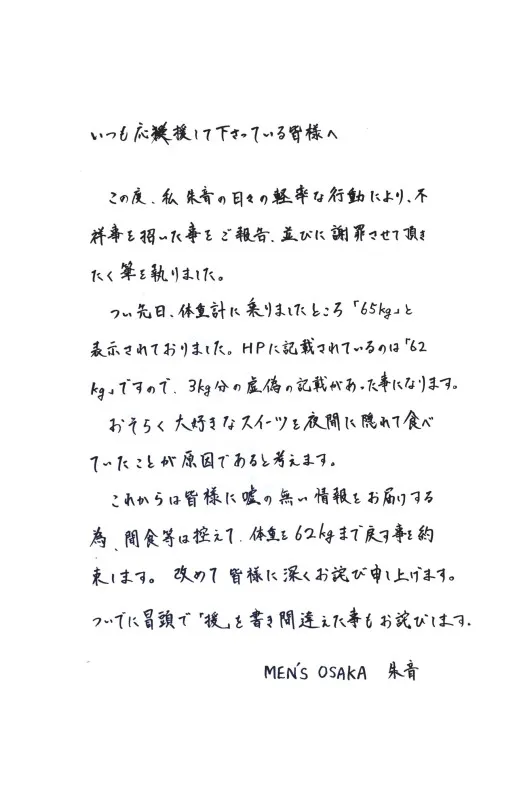 いつも応援して下さっている皆様へ
この度、私 朱音の日々の軽率な行動により、不
祥事を招いた事をご報告、並びに謝罪させて頂き
たく筆を執りました。
つい先日、体重計に乗りましたところ「65kg」と
表示されておりました。HPに記載されているのは「62
kg」ですので、3kg分の虚偽の記載があった事になります。
おそらく大好きなスイーツを夜間に隠れて食べ
ていたことが原因であると考えます。
これからは皆様に嘘の無い情報をお届けする
為、間食等は控えて、体重を62kgまで戻す事を約
束します。改めて皆様に深くお詫び申し上げます。
ついでに冒頭で「援」を書き間違えた事もお詫びします。
MEN'S OSAKA 朱音